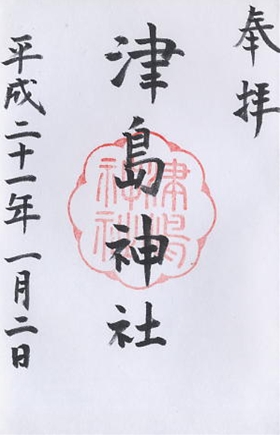 奉拝
津島神社
津島神社
平成二十一年一月二日